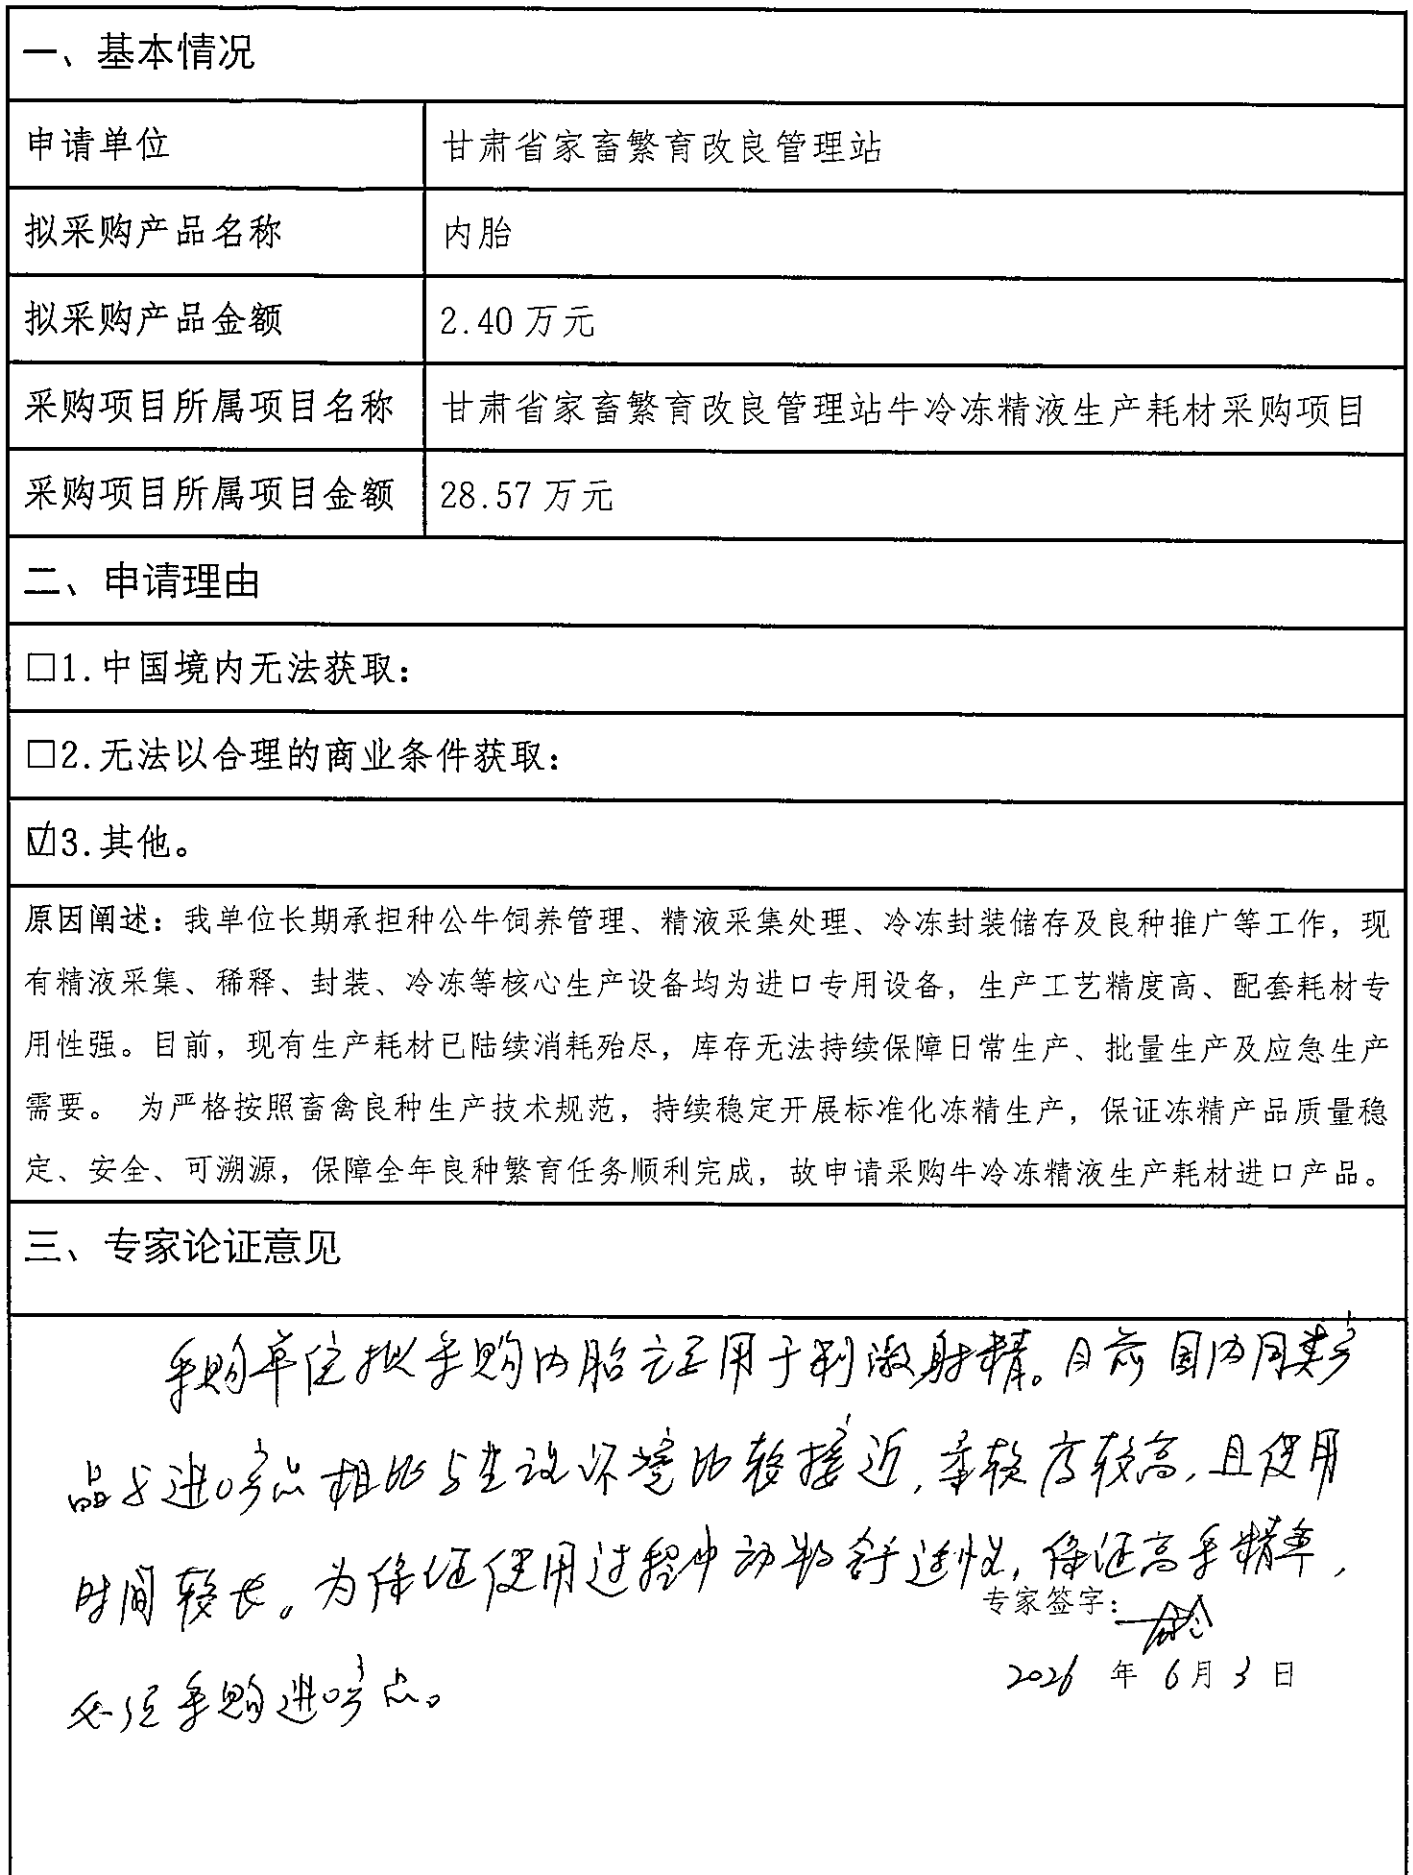 一、基本情况
申请单位 甘肃省家畜繁育改良管理站
拟采购产品名称 内胎
拟采购产品金额 2.40万元
采购项目所属项目名称 甘肃省家畜繁育改良管理站牛冷冻精液生产耗材采购项目
采购项目所属项目金额 28.57万元
二、申请理由
□1.中国境内无法获取：
□2.无法以合理的商业条件获取：
☑3.其他。
原因阐述：我单位长期承担种公牛饲养管理、精液采集处理、冷冻封装储存及良种推广等工作，现
有精液采集、稀释、封装、冷冻等核心生产设备均为进口专用设备，生产工艺精度高、配套耗材专
用性强。目前，现有生产耗材已陆续消耗殆尽，库存无法持续保障日常生产、批量生产及应急生产
需要。 为严格按照畜禽良种生产技术规范，持续稳定开展标准化冻精生产，保证冻精产品质量稳
定、安全、可溯源，保障全年良种繁育任务顺利完成，故申请采购牛冷冻精液生产耗材进口产品。
三、专家论证意见
采购单位拟采购内胎主要用于刺激射精。目前国内同类产
品与进口产品相比与生理环境比较接近，柔软度较高，且使用
时间较长。为保证使用过程中动物舒适性，保证高采精率，
必须采购进口产品。
专家签字：
2026年6月3日